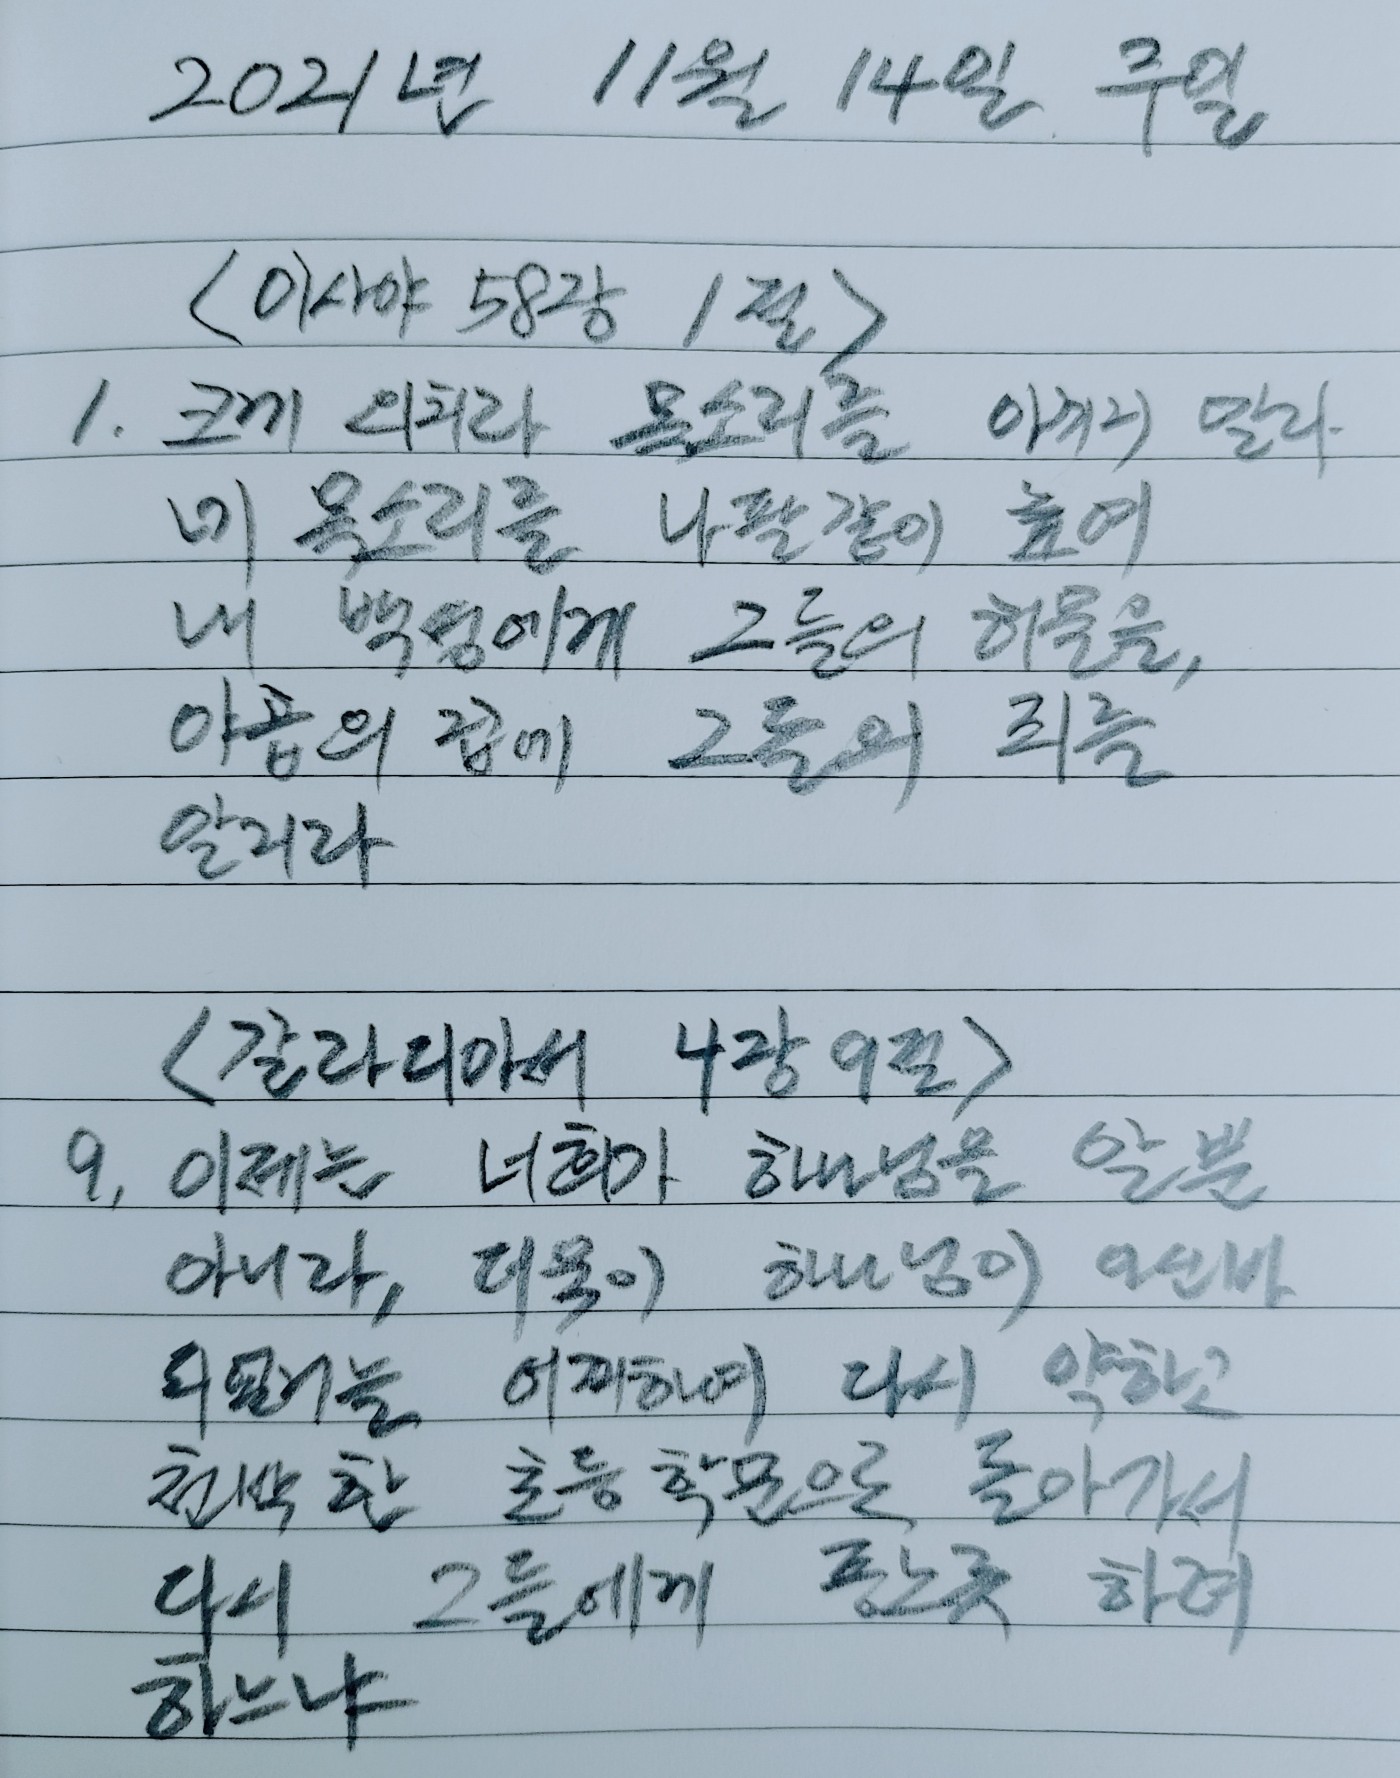 2021년 11월 14일 주일
<이사야 58장 1절>
1. 크게 외치라 목소리를 아끼지 말라
네 목소리를 나팔같이 높여
내 백성에게 그들의 허물을,
야곱의 집에 그들의 죄를
알리라
<갈라디아서 4장 9절>
9, 이제는 너희가 하나님을 알뿐
아니라, 더욱이 하나님이 아신바
되었거늘 어찌하여 다시 약하고
천박한 초등학문으로 돌아가서
다시 그들에게 종노릇 하려
하느냐